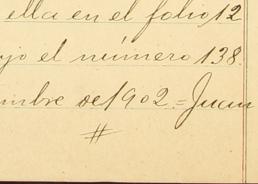 ella en el folio 12
jo el número 138.
mbre de 1902.= Juan
#